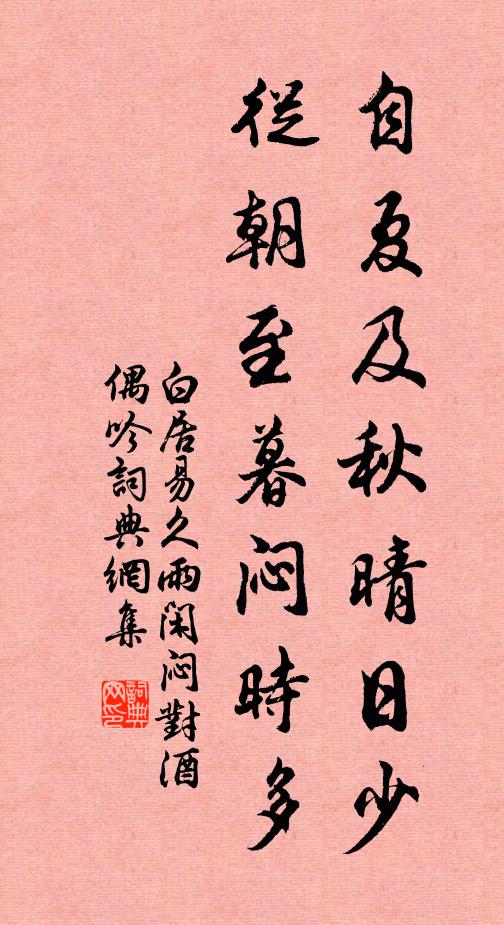 自夏及秋晴日少
從朝至暮闷時多
白居易久雨闲闷對酒
偶吟詞典網集
詞典
网印